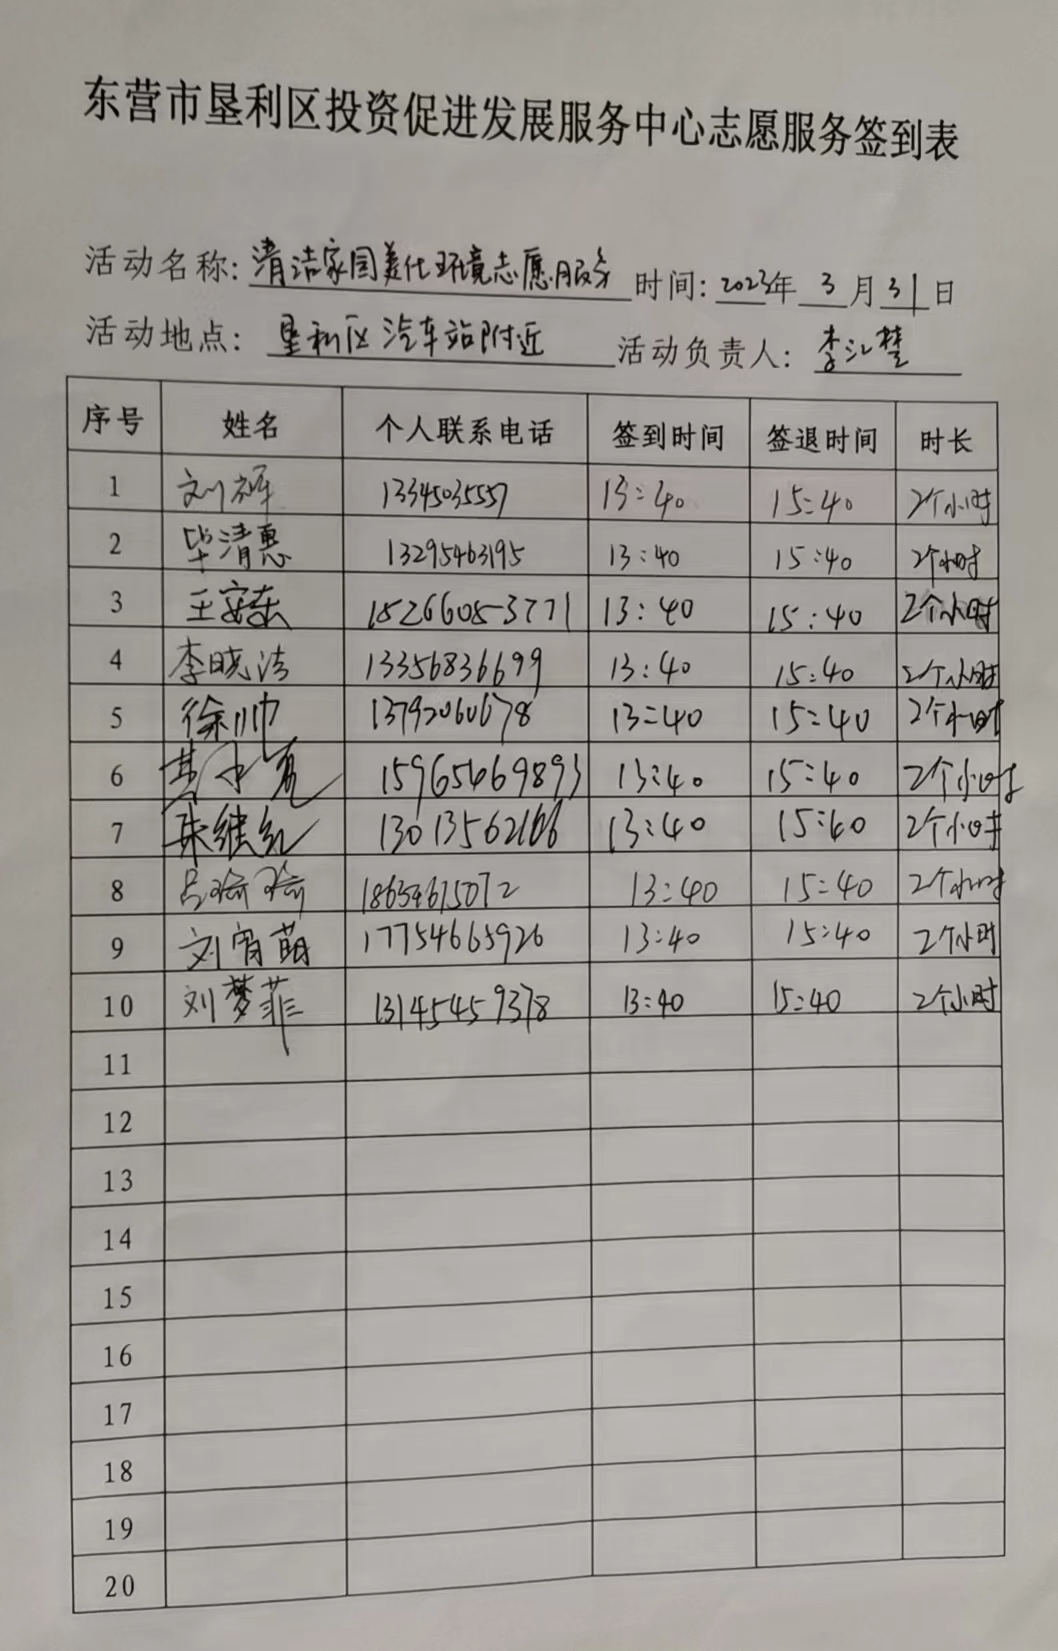 东营市垦利区投资促进发展服务中心志愿服务签到表
活动名称: 清洁家园美化环境志愿服务 时间: 2023年 3 月 31 日
活动地点: 垦利区汽车站附近 活动负责人: 李江楚
序号 姓名 个人联系电话 签到时间 签退时间 时长
1 刘辉 13345035557 13:40 15:40 2个小时
2 毕清惠 13295463195 13:40 15:40 2个小时
3 王安东 15266053771 13:40 15:40 2个小时
4 李晓洁 13356836699 13:40 15:40 2个小时
5 徐帅 13792060678 13:40 15:40 2个小时
6 15965469893 13:40 15:40 2个小时
7 朱继红 13013562166 13:40 15:40 2个小时
8 吕瑜瑜 18654615072 13:40 15:40 2个小时
9 刘宵萌 17754665926 13:40 15:40 2个小时
10 刘梦菲 13145459378 13:40 15:40 2个小时
11
12
13
14
15
16
17
18
19
20